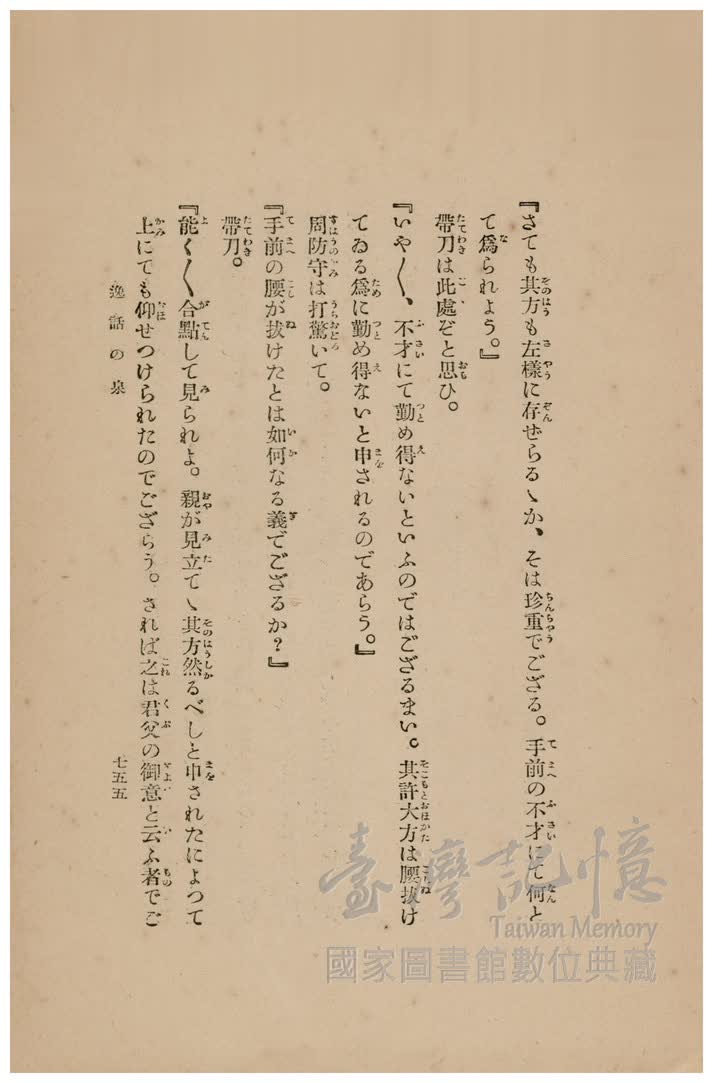 『さても其方も左樣に存ぜらるゝか、そは珍重でござる。手前の不才にて何と
て爲られよう。』
帶刀は此處ぞと思ひ。
『いや〳〵、不才にて勤め得ないといふのではござるまい。其許大方は腰拔け
てゐる爲に勤め得ないと申されるのであらう。』
周防守は打驚いて。
『手前の腰が拔けたとは如何なる義でござるか?』
帶刀。
『能く〳〵合點して見られよ。親が見立てゝ其方然るべしと申されたによつて
上にても仰せつけられたのでござらう。されば之は君父の御意と云ふ者でご
逸話の泉
七五五
臺灣記憶
Taiwan Memory
國家圖書館數位典藏